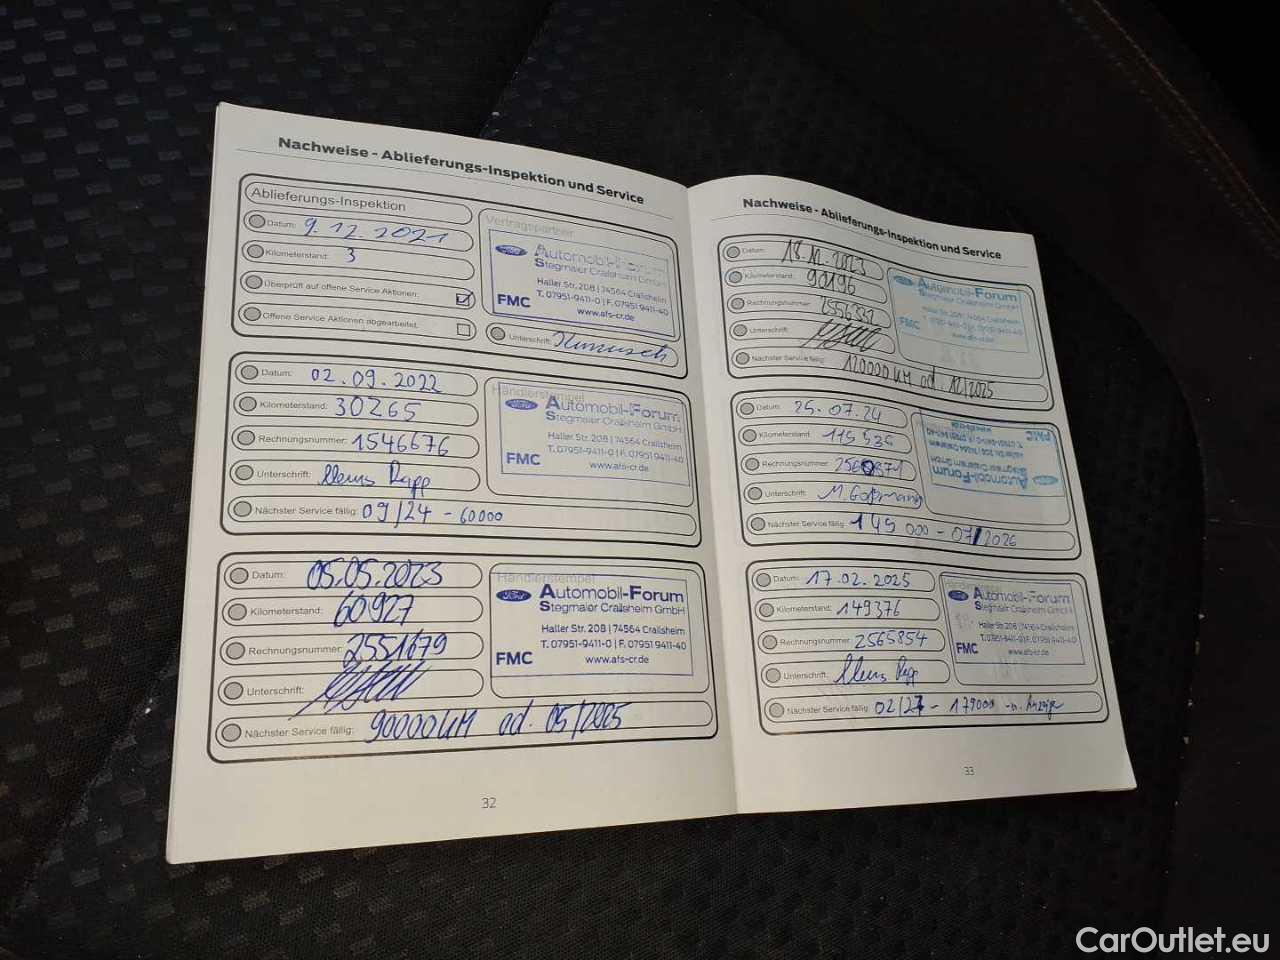 Nachweise - Ablieferungs-Inspektion und Service
Ablieferungs-Inspektion
Datum: 9.12.2021
Kilometerstand: 3
Überprüft auf offene Service Aktionen:
Offene Service Aktionen abgearbeitet:
Vertragspartner
Ford Automobil-Forum
Stegmaier Crailsheim GmbH
Haller Str. 208 | 74564 Crailsheim
T. 07951-9411-0 | F. 07951 9411-40
FMC
www.afs-cr.de
Unterschrift:
Datum: 02.09.2022
Kilometerstand: 30265
Rechnungsnummer: 1546676
Unterschrift:
Nächster Service fällig: 09/24 - 60000
Händlerstempel
Ford Automobil-Forum
Stegmaier Crailsheim GmbH
Haller Str. 208 | 74564 Crailsheim
T. 07951-9411-0 | F. 07951 9411-40
FMC
www.afs-cr.de
Datum: 05.05.2023
Kilometerstand: 60927
Rechnungsnummer: 2551679
Unterschrift:
Nächster Service fällig: 90000KM od. 05/2025
Händlerstempel
Ford Automobil-Forum
Stegmaier Crailsheim GmbH
Haller Str. 208 | 74564 Crailsheim
T. 07951-9411-0 | F. 07951 9411-40
FMC
www.afs-cr.de
32
Nachweise - Ablieferungs-Inspektion und Service
Datum:
Kilometerstand: 90196
Rechnungsnummer: 2556332
Unterschrift:
Nächster Service fällig: 120000KM od. 12/2025
Ford Automobil-Forum
Stegmaier Crailsheim GmbH
Haller Str. 208 | 74564 Crailsheim
T. 07951-9411-0 | F. 07951 9411-40
FMC
www.afs-cr.de
Datum: 25.07.24
Kilometerstand: 115 536
Rechnungsnummer:
Unterschrift: M. Goßmann
Nächster Service fällig: 145 000 - 07/2026
Ford Automobil-Forum
Stegmaier Crailsheim GmbH
Haller Str. 208 | 74564 Crailsheim
T. 07951-9411-0 | F. 07951 9411-40
FMC
www.afs-cr.de
Datum: 17.02.2025
Kilometerstand: 149376
Rechnungsnummer: 2565854
Unterschrift:
Nächster Service fällig: 02/27 - 179000 - n. Anzeige
Händlerstempel
Ford Automobil-Forum
Stegmaier Crailsheim GmbH
Haller Str. 208 | 74564 Crailsheim
T. 07951-9411-0 | F. 07951 9411-40
FMC
www.afs-cr.de
33
CarOutlet.eu